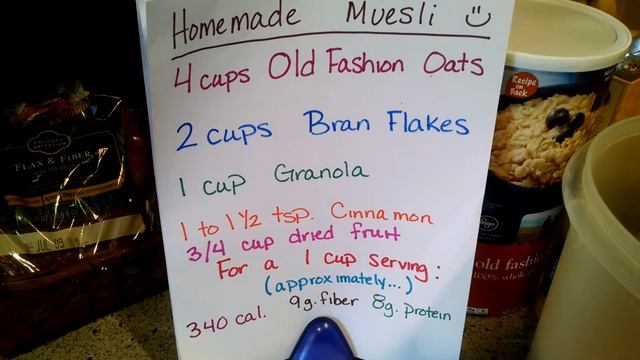 Homemade Muesli
4 cups Old Fashion Oats
2 cups Bran Flakes
1 cup Granola
1 to 1 1/2 tsp. Cinnamon
3/4 cup dried fruit
For a 1 cup serving:
(approximately...)
340 cal. 9g. fiber 8g. protein
FLAX & FIBER
JUL 09
Recipe
on
Back
old fashi
100% whole